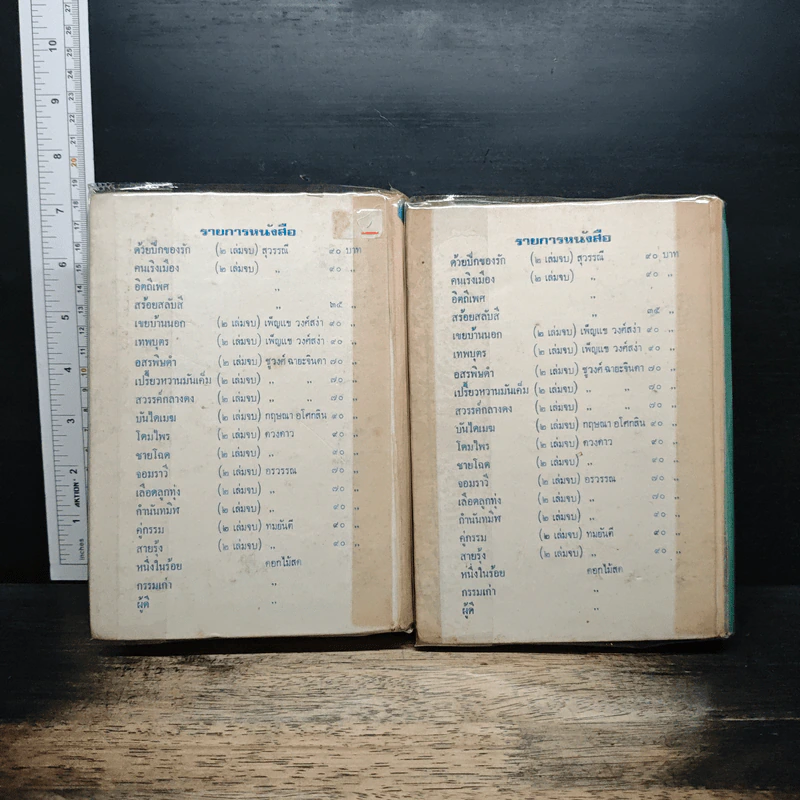 รายการหนังสือ
ด้วยปีกของรัก (๒ เล่มจบ) สุวรรณี ๙๐ บาท
คนเริงเมือง (๒ เล่มจบ) " ๙๐ "
อิตถีเพศ "
สร้อยสลับสี " ๓๕ "
เขยบ้านนอก (๒ เล่มจบ) เพ็ญแข วงศ์สง่า ๙๐ "
เทพบุตร (๒ เล่มจบ) เพ็ญแข วงศ์สง่า ๙๐ "
อสรพิษดำ (๒ เล่มจบ) ชูวงศ์ ฉายะจินดา ๘๐ "
เปรี้ยวหวานมันเค็ม (๒ เล่มจบ) " " ๘๐ "
สวรรค์กลางดง (๒ เล่มจบ) " " ๘๐ "
บันไดเมฆ (๒ เล่มจบ) กฤษณา อโศกสิน ๙๐ "
โดมไพร (๒ เล่มจบ) ดวงดาว ๙๐ "
ชายโฉด (๒ เล่มจบ) " ๙๐ "
จอมราวี (๒ เล่มจบ) อรวรรณ ๘๐ "
เลือดลูกทุ่ง (๒ เล่มจบ) " ๘๐ "
กำนันทมิฬ (๒ เล่มจบ) " ๙๐ "
คู่กรรม (๒ เล่มจบ) ทมยันตี ๙๐ "
สายรุ้ง (๒ เล่มจบ) " ๙๐ "
หนึ่งในร้อย ดอกไม้สด
กรรมเก่า "
ผู้ดี "
รายการหนังสือ
ด้วยปีกของรัก (๒ เล่มจบ) สุวรรณี ๙๐ บาท
คนเริงเมือง (๒ เล่มจบ) " ๙๐ "
อิตถีเพศ "
สร้อยสลับสี " ๓๕ "
เขยบ้านนอก (๒ เล่มจบ) เพ็ญแข วงศ์สง่า ๙๐ "
เทพบุตร (๒ เล่มจบ) เพ็ญแข วงศ์สง่า ๙๐ "
อสรพิษดำ (๒ เล่มจบ) ชูวงศ์ ฉายะจินดา ๘๐ "
เปรี้ยวหวานมันเค็ม (๒ เล่มจบ) " " ๘๐ "
สวรรค์กลางดง (๒ เล่มจบ) " " ๘๐ "
บันไดเมฆ (๒ เล่มจบ) กฤษณา อโศกสิน ๙๐ "
โดมไพร (๒ เล่มจบ) ดวงดาว ๙๐ "
ชายโฉด (๒ เล่มจบ) " ๙๐ "
จอมราวี (๒ เล่มจบ) อรวรรณ ๘๐ "
เลือดลูกทุ่ง (๒ เล่มจบ) " ๘๐ "
กำนันทมิฬ (๒ เล่มจบ) " ๙๐ "
คู่กรรม (๒ เล่มจบ) ทมยันตี ๙๐ "
สายรุ้ง (๒ เล่มจบ) " ๙๐ "
หนึ่งในร้อย ดอกไม้สด
กรรมเก่า "
ผู้ดี "